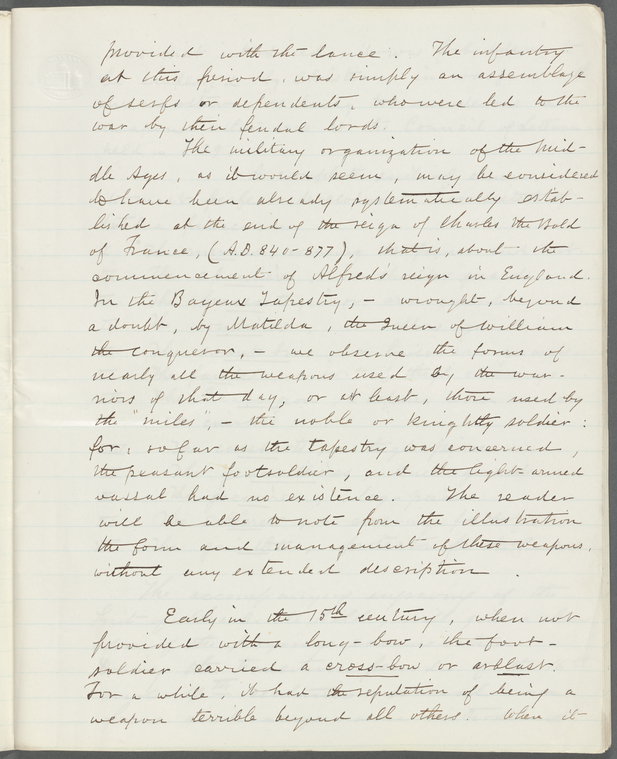 provided with the lance. The infantry
at this period, was simply an assemblage
of serfs or dependents, who were led to the
war by their feudal lords.
The military organization of the Mid-
dle Ages, as it would seem, may be considered
to have been already systematically estab-
lished at the end of the reign of Charles the Bold
of France, (A.D. 840-877), that is, about the
commencement of Alfred's reign in England.
In the Bayeux Tapestry, - wrought, beyond
a doubt, by Matilda, the Queen of William
the Conqueror, - we observe the forms of
nearly all the weapons used by the war-
riors of that day, or at least, those used by
the "miles", - the noble or knightly soldier:
for, so far as the tapestry was concerned,
the peasant footsoldier, and the light-armed
vassal had no existence. The reader
will be able to note from the illustration
the form and management of these weapons,
without any extended description.
Early in the 15th century, when not
provided with a long-bow, the foot-
soldier carried a cross-bow or arblast.
For a while, it had the reputation of being a
weapon terrible beyond all others. When it